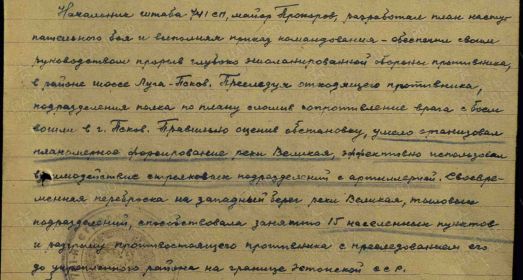 Начальник штаба 741 СП, майор Прохоров, разработал план насту-
пательного боя и выполняя приказ командования - обеспечил своим
руководством прорыв глубоко эшелонированной обороны противника,
в районе шоссе Луга-Псков. Преследуя отходящего противника,
подразделения полка по плану сломив сопротивление врага с боем
вошли в г. Псков. Правильно оценив обстановку, умело организовал
планомерное форсирование реки Великая, эффективно использовал
взаимодействие стрелковых подразделений с артиллерией. Своевре-
менная переброска на западный берег реки Великая, тыловых
подразделений, способствовала занятию 15 населенных пунктов
и разгрому противостоящего противника с преследованием его
до укрепленного района на границе Эстонской ССР.